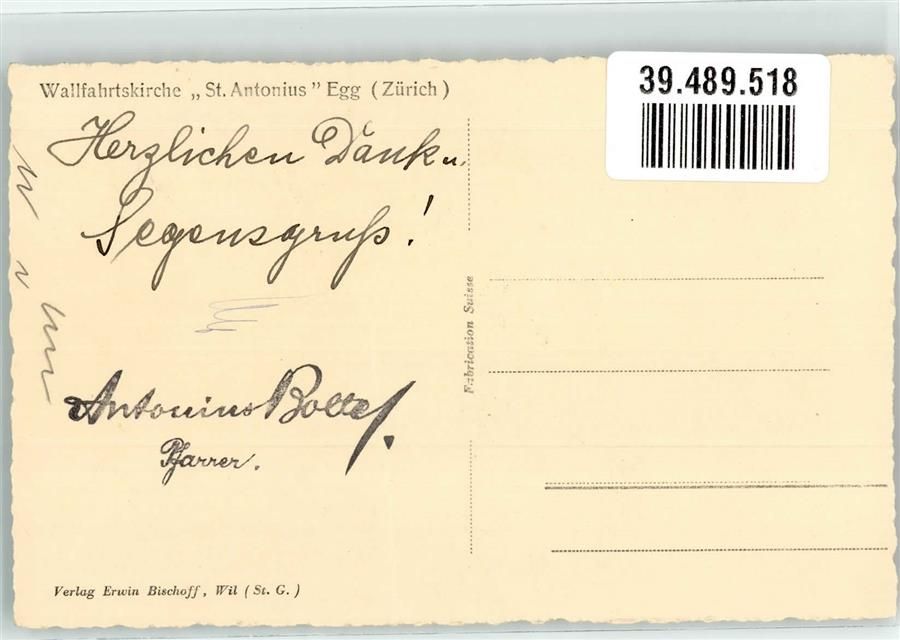 Wallfahrtskirche „St. Antonius” Egg (Zürich)
Herzlichen Dank u.
Segensgruß!
Antonius Bolte
Pfarrer.
Verlag Erwin Bischoff, Wil (St. G.)
Fabrication Suisse
39.489.518